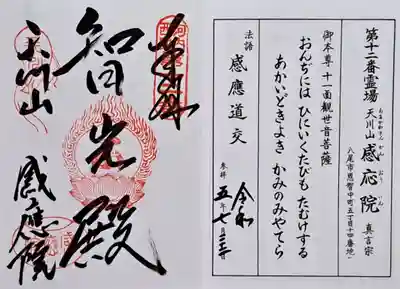 第十二番霊場 天川山 感応院 真言宗
あまかわさん かん おう いん
八尾市恩智中町五丁目十四番地
御本尊 十一面観世音菩薩
おんぢには ひにいくたびも たむけする
あかいどきよき かみのみやてら
法語 感應道交
参拝 令和五年七月
奉拝
智光殿
天川山
感應院